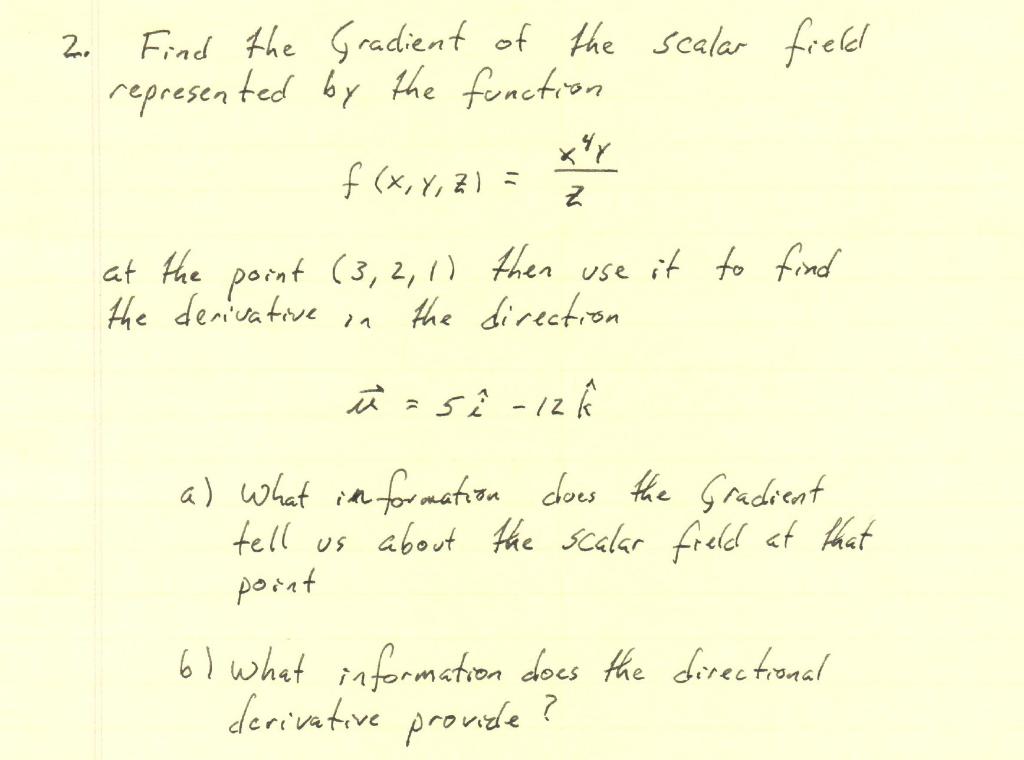 2. Find the Gradient of the scalar field
represented by the function
f (x, y, z) = x⁴y / z
at the point (3, 2, 1) then use it to find
the derivative in the direction
u⃗ = 5 î - 12 k̂
a) What information does the Gradient
tell us about the scalar field at that
point
b) What information does the directional
derivative provide ?